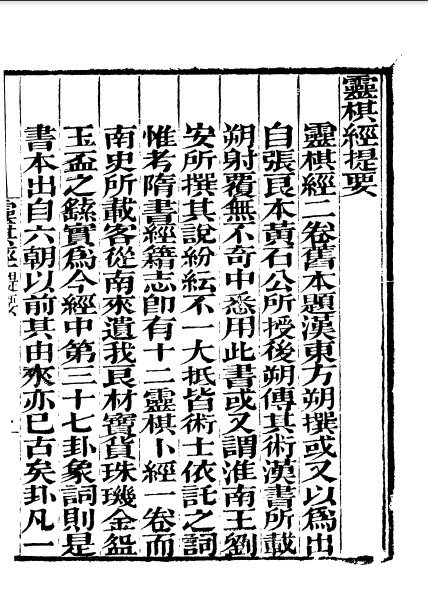 靈棋經提要
靈棋經二卷舊本題漢東方朔撰或又以爲出
自張良本黃石公所授後朔傳其術漢書所載
朔射覆無不奇中悉用此書或又謂淮南王劉
安所撰其說紛紜不一大抵皆術士依託之詞
惟考隋書經籍志卽有十二靈棋卜經一卷而
南史所載客從南來遺我良材寶貨珠璣金盌
玉盃之繇實爲今經中第三十七卦象詞則是
書本出自六朝以前其由來亦已古矣卦凡一
靈棋經提要